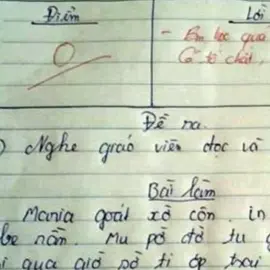 Điểm
Lời
- Em học quá
Có tố chất,
Đề ra.
Nghe giáo viên đọc và
Bài làm
Mania goál xồ côn. in
be nằm. Mu pờ đờ tu
qua giờ pờ ti óp